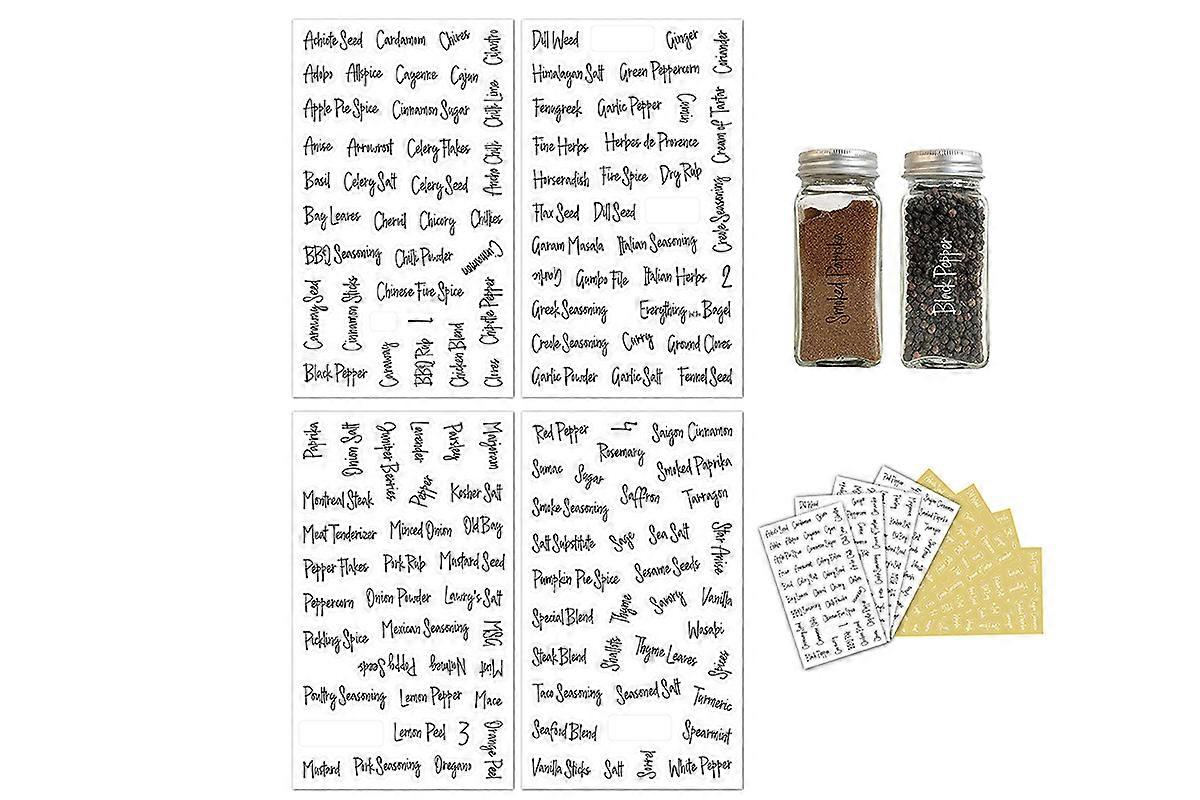 Achiote Seed Cardamom Chives Cilantro
Adobo Allspice Cayenne Cajun
Apple Pie Spice Cinnamon Sugar Chili Lime
Anise Arrowroot Celery Flakes
Ancho Chili
Basil Celery Salt Celery Seed
Bay Leaves Chervil Chicory Chilies
BBQ Seasoning Chili Powder Cinnamon
Caraway Seed Cinnamon Sticks Chinese Five Spice Chipotle Pepper
1
Black Pepper Caraway BBQ Rub Chicken Blend Cloves
Dill Weed Ginger Coriander
Himalayan Salt Green Peppercorn
Fenugreek Garlic Pepper Cumin Cream of Tartar
Fine Herbs Herbes de Provence
Horseradish Fire Spice Dry Rub
Creole Seasoning
Flax Seed Dill Seed
Garam Masala Italian Seasoning
Garlic Gumbo File Italian Herbs 2
Greek Seasoning Everything but the Bagel
Creole Seasoning Curry Ground Cloves
Garlic Powder Garlic Salt Fennel Seed
Paprika Onion Salt Juniper Berries Lavender Parsley Marjoram
Montreal Steak Pepper Kosher Salt
Meat Tenderizer Minced Onion Old Bay
Pepper Flakes Pork Rub Mustard Seed
Peppercorn Onion Powder Lawry's Salt
Pickling Spice Mexican Seasoning MSG
Poppy Seeds Nutmeg Mint
Poultry Seasoning Lemon Pepper Mace
Lemon Peel 3 Orange Peel
Mustard Pork Seasoning Oregano
Red Pepper 4 Saigon Cinnamon
Rosemary
Sumac Sugar Smoked Paprika
Smoke Seasoning Saffron Tarragon
Salt Substitute Sage Sea Salt Star Anise
Pumpkin Pie Spice Sesame Seeds
Special Blend Thyme Savory Vanilla
Wasabi
Steak Blend Shallots Thyme Leaves Spices
Taco Seasoning Seasoned Salt Turmeric
Seafood Blend Spearmint
Vanilla Sticks Salt Sorrel White Pepper
Smoked Paprika
Black Pepper